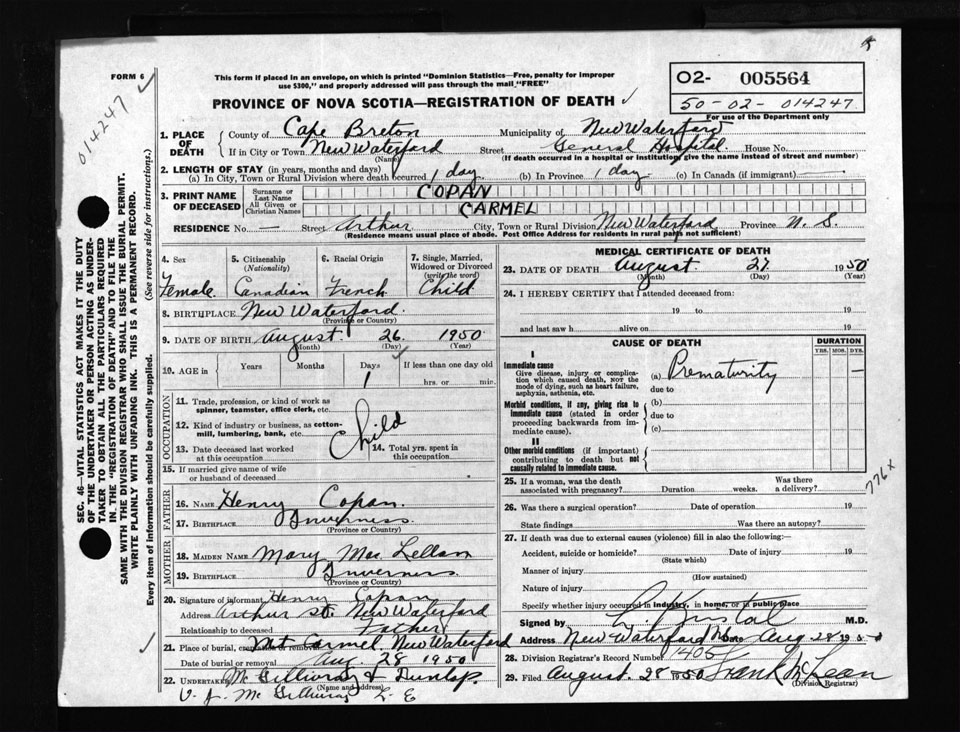 FORM 6
014247
This form if placed in an envelope, on which is printed "Dominion Statistics—Free, penalty for improper
use $300," and properly addressed will pass through the mail "FREE"
PROVINCE OF NOVA SCOTIA—REGISTRATION OF DEATH
O2- 005564
50-02-014247
For use of the Department only
1. PLACE OF DEATH County of Cape Breton Municipality of New Waterford
If in City or Town New Waterford Street General Hospital. House No.
(Name) (If death occurred in a hospital or institution, give the name instead of street and number)
2. LENGTH OF STAY (in years, months and days)
(a) In City, Town or Rural Division where death occurred 1 day (b) In Province 1 day (c) In Canada (if immigrant)
3. PRINT NAME OF DECEASED Surname or Last Name COPAN
All Given or Christian Names CARMEL
RESIDENCE No. — Street Arthur City, Town or Rural Division New Waterford Province N. S.
(Residence means usual place of abode. Post Office Address for residents in rural parts not sufficient)
4. Sex 5. Citizenship (Nationality) 6. Racial Origin 7. Single, Married, Widowed or Divorced (write the word)
Female Canadian French Child
8. BIRTHPLACE New Waterford.
(Province or Country)
9. DATE OF BIRTH August 26 1950
(Month) (Day) (Year)
10. AGE in Years Months Days If less than one day old
1 hrs. or min.
OCCUPATION
11. Trade, profession, or kind of work as
spinner, teamster, office clerk, etc.
12. Kind of industry or business, as cotton-
mill, lumbering, bank, etc.
Child
13. Date deceased last worked
at this occupation
14. Total yrs. spent in
this occupation
15. If married give name of wife
or husband of deceased
FATHER
16. Name Henry Copan.
17. Birthplace Inverness.
MOTHER
18. MAIDEN NAME Mary Mac Lellan
19. BIRTHPLACE Inverness.
(Province or Country)
20. Signature of informant Henry Copan
Address Arthur St. New Waterford
Relationship to deceased Father
21. Place of burial, cremation or removal Mt Carmel. New Waterford
Date of burial or removal Aug. 28 1950
22. UNDERTAKER McGillivray & Dunlap.
(Name and address)
V. J. McGillivray L. E
MEDICAL CERTIFICATE OF DEATH
23. DATE OF DEATH August 27 1950
(Month) (Day) (Year)
24. I HEREBY CERTIFY that I attended deceased from:
19 to 19
and last saw h alive on 19
CAUSE OF DEATH DURATION
YRS. MOS. DYS.
I
Immediate cause
Give disease, injury or complica-
tion which caused death, NOT the
mode of dying, such as heart failure,
asphyxia, asthenia, etc.
(a) Prematurity —
due to
Morbid conditions, if any, giving rise to
immediate cause (stated in order
proceeding backwards from im-
mediate cause).
(b)
due to
(c)
II
Other morbid conditions (if important)
contributing to death but not
causally related to immediate cause.
776X
25. If a woman, was the death
associated with pregnancy? Duration weeks. Was there a delivery?
26. Was there a surgical operation? Date of operation 19
State findings Was there an autopsy?
27. If death was due to external causes (violence) fill in also the following:
Accident, suicide or homicide? Date of injury 19
(State which)
Manner of injury
(How sustained)
Nature of injury
Specify whether injury occurred in industry, in home, or in public place
Signed by M.D.
Address New Waterford Date Aug 28 1950
28. Division Registrar's Record Number 1405
29. Filed August. 28 1950 Frank McLean
(Division Registrar)
SEC. 46—VITAL STATISTICS ACT MAKES IT THE DUTY
OF THE UNDERTAKER OR PERSON ACTING AS UNDER-
TAKER TO OBTAIN ALL THE PARTICULARS REQUIRED
IN THE "REGISTRATION OF DEATH" AND TO FILE THE
SAME WITH THE DIVISION REGISTRAR WHO SHALL ISSUE THE BURIAL PERMIT.
WRITE PLAINLY WITH UNFADING INK. THIS IS A PERMANENT RECORD.
Every item of information should be carefully supplied. (See reverse side for instructions.)